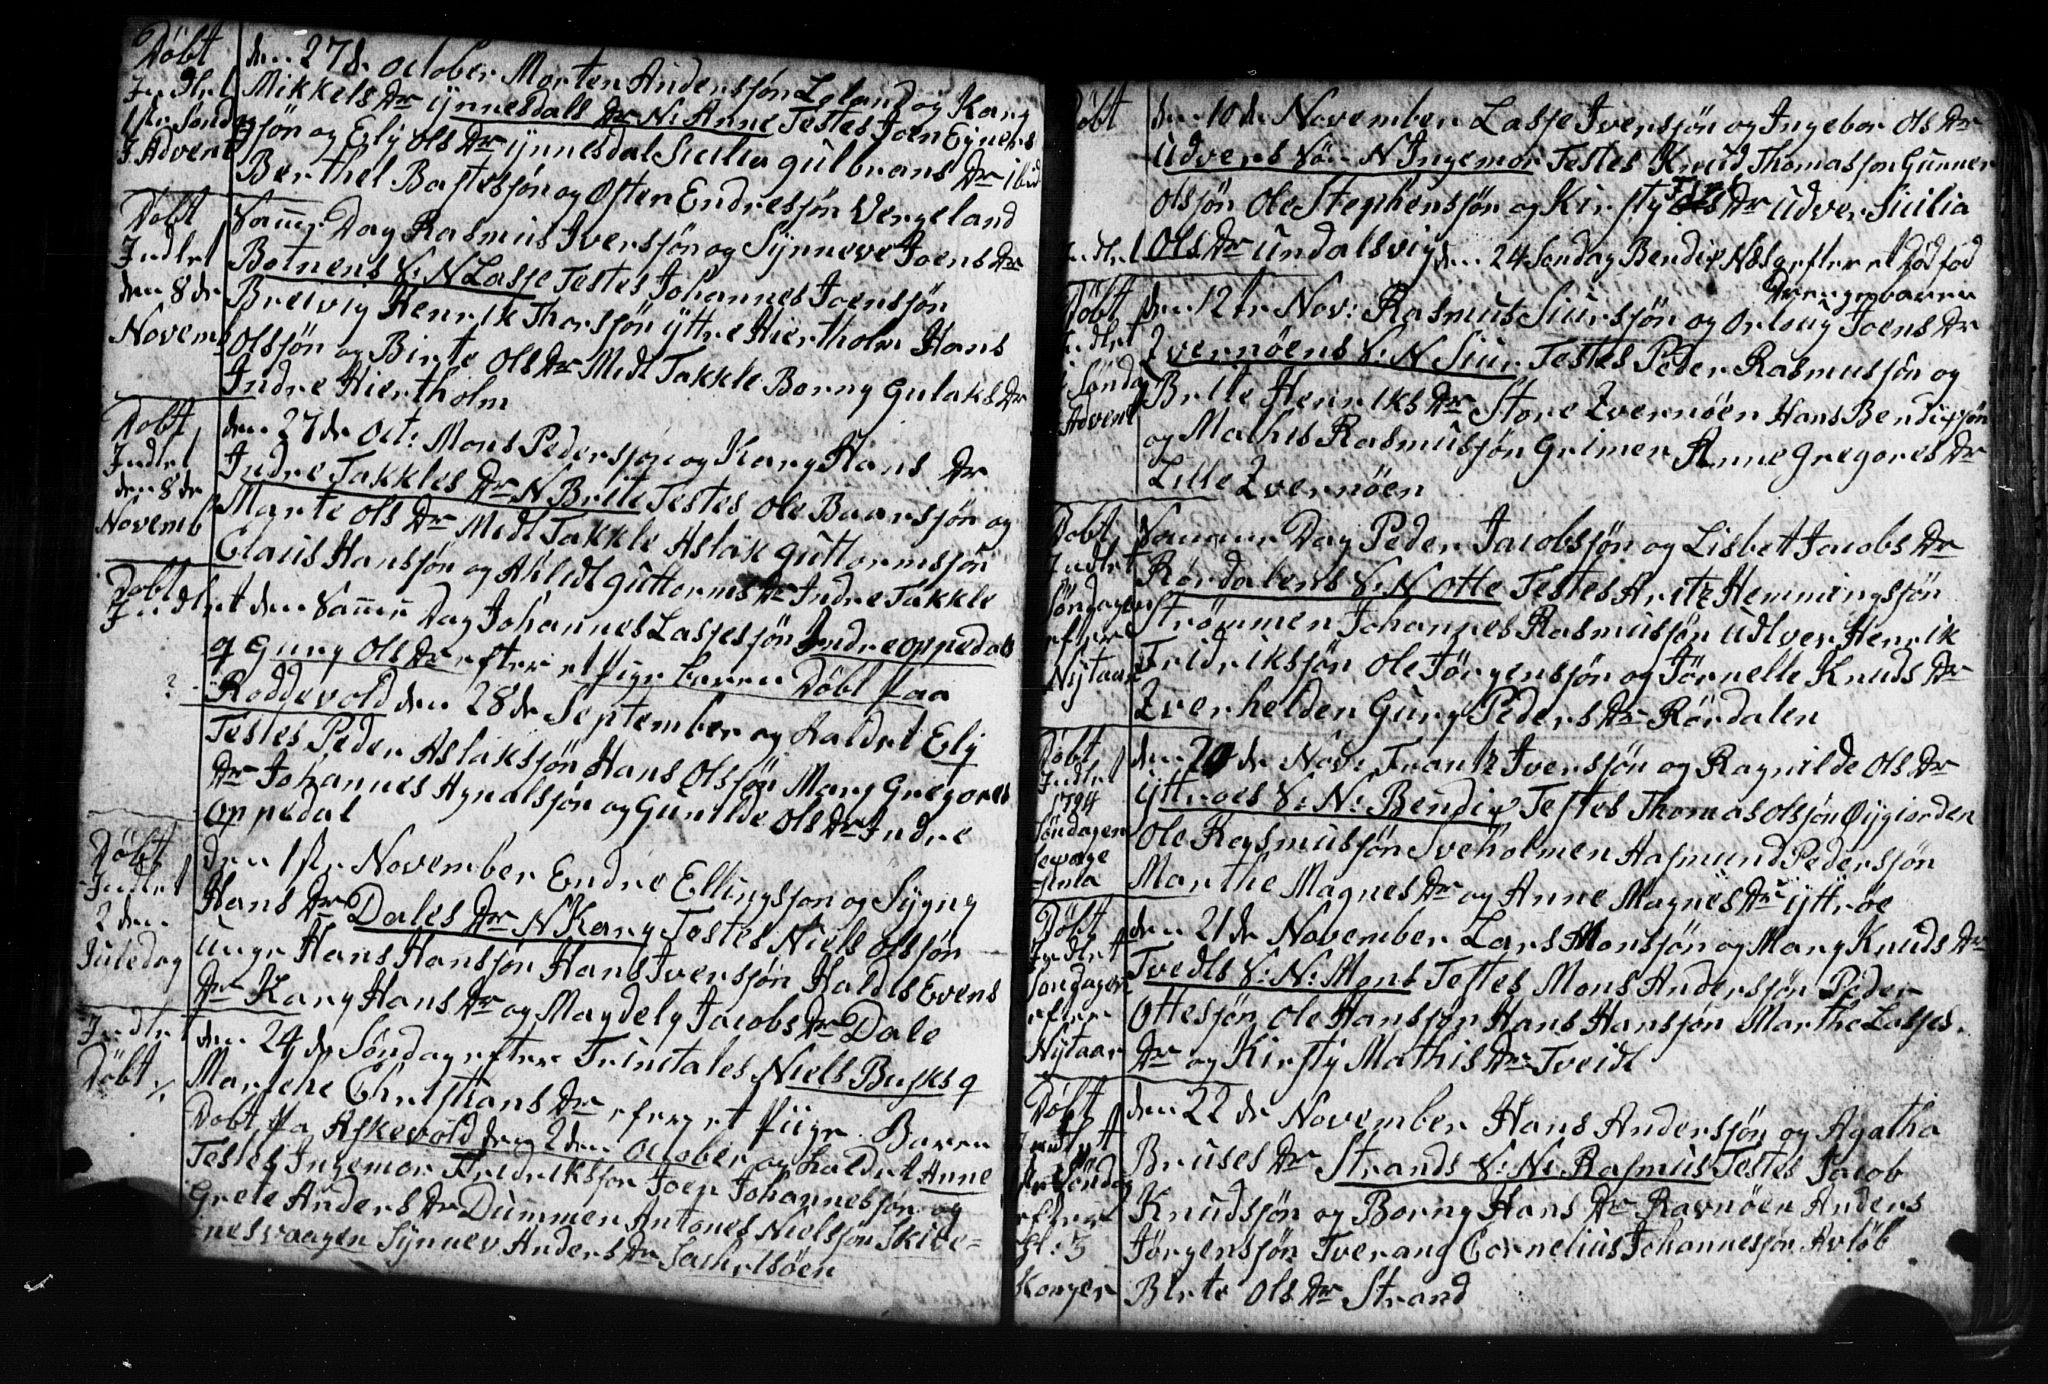 Døbt
Indlet
1ste Søndag
I Advent
den 27de October Morten Andersjøn Leland og Kary
Mikkels Dr ijnnesdals Dr N: Anne Testes Joen Eyners
sjøn og Elj Ols Dr ijnnesdal Sicilia Gulbrans Dr ibid
Berthel Bastesjøn og Østen Endresjøn Vergeland
Døbt
Indlet
den 8de
Novemb
Samme Dag Rasmus Iversjøn og Sijnneve Joens Dr
Botnens S: N Lasse Testes Johannes Joensjøn
Breivig Henrik Thorsjøn ijttre Hiertholm Hans
Olsjøn og Birte Ols Dr Midt Takkle Borny Gulaks Dr
Indre Hiertholm
Døbt
Indlet
den 8de
Novemb
den 27de Oct: Mons Pedersjøn og Kary Hans Dr
Indre Takkles Dr N Brite Testes Ole Baarsjøn og
Marte Ols Dr Midt Takkle Aslak Guttormsjøn
Claus Hansjøn og Ahlidt Guttorms Dr Indre Takkle
Døbt
Indlet den Samme Dag Johannes Lassesjøn Indre oppedal
og Gury Ols Dr efter et Pige barn Døbt paa
Roddevold den 28de September og kaldet Elj
Testes Peder Aslaksjøn Hans Olsjøn Mary Gregores
Dr Johannes Aynalsjøn og Gunilde Ols Dr Indre
oppedal
Døbt
Indlet
2den
Juledag
den 1ste November Endre Ellingsjøn og Sygny
Hans Dr Dales Dr N Kary Testes Niels Olsjøn
unge Hans Hansjøn Hans Iversjøn Haldis Evens
Dr Kary Hans Dr og Magdely Jacobs Dr Dale
Indlet
Døbt
den 24de Søndag efter Trinitates Niels Busks og
Marlene Christians Dr efter et Piige Barn
Døbt pa Askevold den 2den October og kaldet Anne
Testes Ingemor Fridriksjøn Joen Johannesjøn og
Grete Anders Dr Dummen Antones Nielsjøn Skive-
nesvaagen Synnev Anders Dr
Døbt
den 10de November Lasse Iversjøn og Ingebor Ols Dr
Udvers Søn N Ingemor Testes Knud Thomasjøn Gunner
Olsjøn Ole Stephensjøn og Kirsty Dr Udver Sicilia
Ols Dr Undalsvig den 24 Søndag Bendix Næs efter et Dødfød
Drengebarn
Døbt
Indlet
Søndag
Advent
den 12te Nov: Rasmus Siursjøn og Orloug Joens Dr
Zvernøens S: N Siur Testes Peder Rasmusjøn og
Brite Henriks Dr Store Zvernøen Hans Bendixsjøn
og Mathis Rasmusjøn Grimen Anne Gregores Dr
Lille Zvernøen
Døbt
Indlet
Søndagen
efter
Nijtaar
Samme Dag Peder Jacobsjøn og Lisbet Jacobs Dr
Rørdalens S: N Otte Testes Aretz Hemmingsjøn
Strømmen Johannes Rasmusjøn Udtver Henrik
Fridriksjøn Ole Jørgensjøn og Jørnelle Knuds Dr
Zverhelden Gury Peders Dr Rørdalen
Døbt
Indlet
1794
Søndagen
den 20de Nov: Frantz Iversjøn og Ragnilde Ols Dr
ijttrøes S: N: Bendix Testes Thomas Olsjøn Øijgiorden
Ole Rasmusjøn Sveholmen Aasmund Pedersjøn
Marthe Magnes Dr og Anne Magnes Dr ijttrøe
Døbt
Indlet
Søndagen
efter
Nijtaar
den 21de November Lars Monsjøn og Mary Knuds Dr
Tvedts S: N: Mons Testes Mons Andersjøn Peder
Ottesjøn Ole Hansjøn Hans Hansjøn Marthe Lasses
Dr og Kirsty Mathis Dr Tveidt
Døbt
Indlet
Søndag
efter
hl: 3
Konger
den 22de November Hans Andersjøn og Agatha
Bruses Dr Strands S: N: Rasmus Testes Jacob
Knudsjøn og Borny Hans Dr Ravnøen Anders
Jørgensjøn Tverang Cornelius Johannesjøn Avløb
Birte Ols Dr Strand